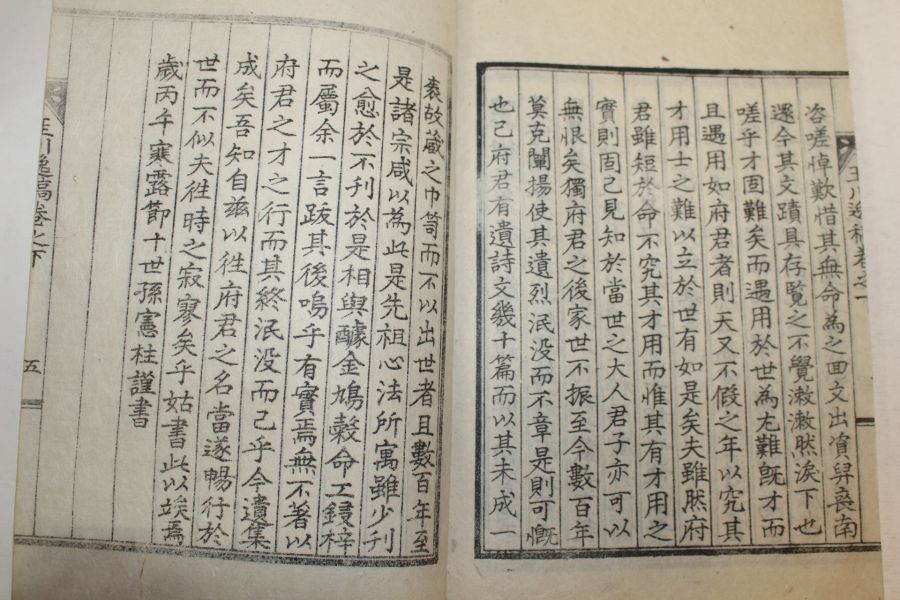 咨嗟悼歎惜其無命為之面文出資舁喪南
還今其文蹟具存覽之不覺潄潄然淚下也
嗟乎才固難矣而遇用於世為尢難旣才而
且遇用如府君者則天又不假之年以究其
才用士之難以立於世有如是矣夫雖然府
君雖短於命不究其才用而惟其有才用之
實則固已見知於當世之大人君子亦可以
無恨矣獨府君之後家世不振至今數百年
莫克闡揚使其遺烈泯没而不章是則可慨
也已府君有遺詩文幾十篇而以其未成一
袠故蔵之巾笥而不以出世者且數百年至
是諸宗咸以為此是先祖心法所寓雖少刊
之愈於不刋於是相與醵金鳩糓命工鋟梓
而屬余一言跋其後嗚乎有實焉無不著以
府君之才之行而其終泯没而已乎今遺集
成矣吾知自兹以徃府君之名當遂暢行於
世而不似夫徃時之寂寥矣乎姑書此以竢焉
歲丙午寒露節十世孫憲柱謹書
玉川逸稿卷之下
五